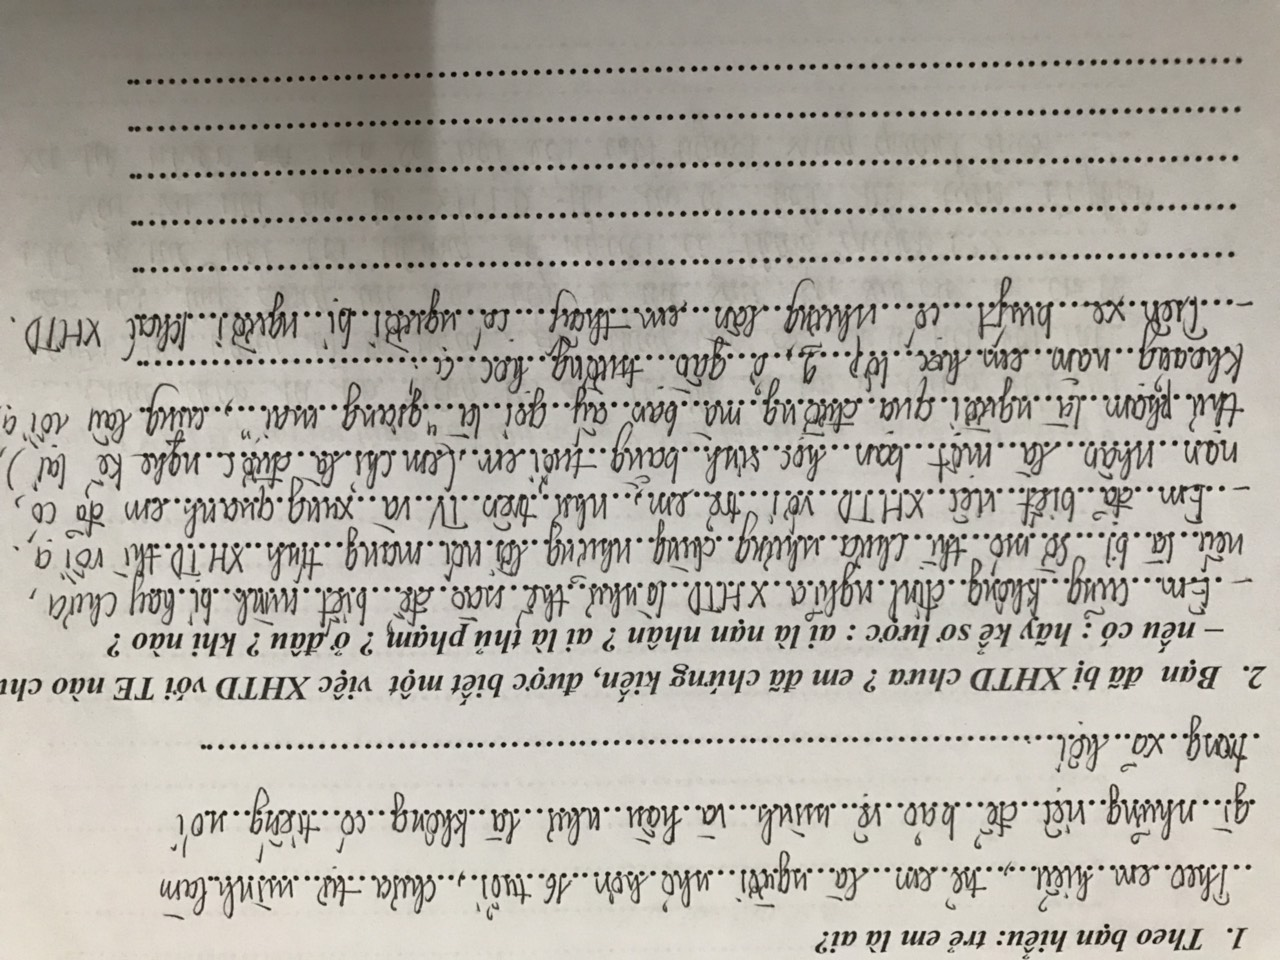 1. Theo bạn hiểu: trẻ em là ai?
Theo em hiểu, trẻ em là người nhỏ hơn 16 tuổi, chưa tự mình làm
gì những việc để bảo vệ mình và hầu như là không có tiếng nói
trong xã hội.
2. Bạn đã bị XHTD chưa? em đã chứng kiến, được biết một việc XHTD với TE nào
– nếu có: hãy kể sơ lược: ai là nạn nhân? ai là thủ phạm? ở đâu? khi nào?
- Em cũng không định nghĩa XHTD là như thế nào để biết mình bị hay chưa,
nếu là bị sờ mó thì chưa nhưng những lời nói mang tính XHTD thì rồi ạ.
- Em đã biết việc XHTD với trẻ em, như trên TV và xung quanh em đã có,
nạn nhân là một bạn học sinh bằng tuổi em (em chỉ là được nghe kể lại),
thủ phạm là người qua đường mà bạn ấy gọi là "giăng mai", cũng lâu rồi ạ
khoảng năm em học lớp 9, ở gần trường học ạ.
- Trên xe buýt có những lần em thấy có người bị người khác XHTD.